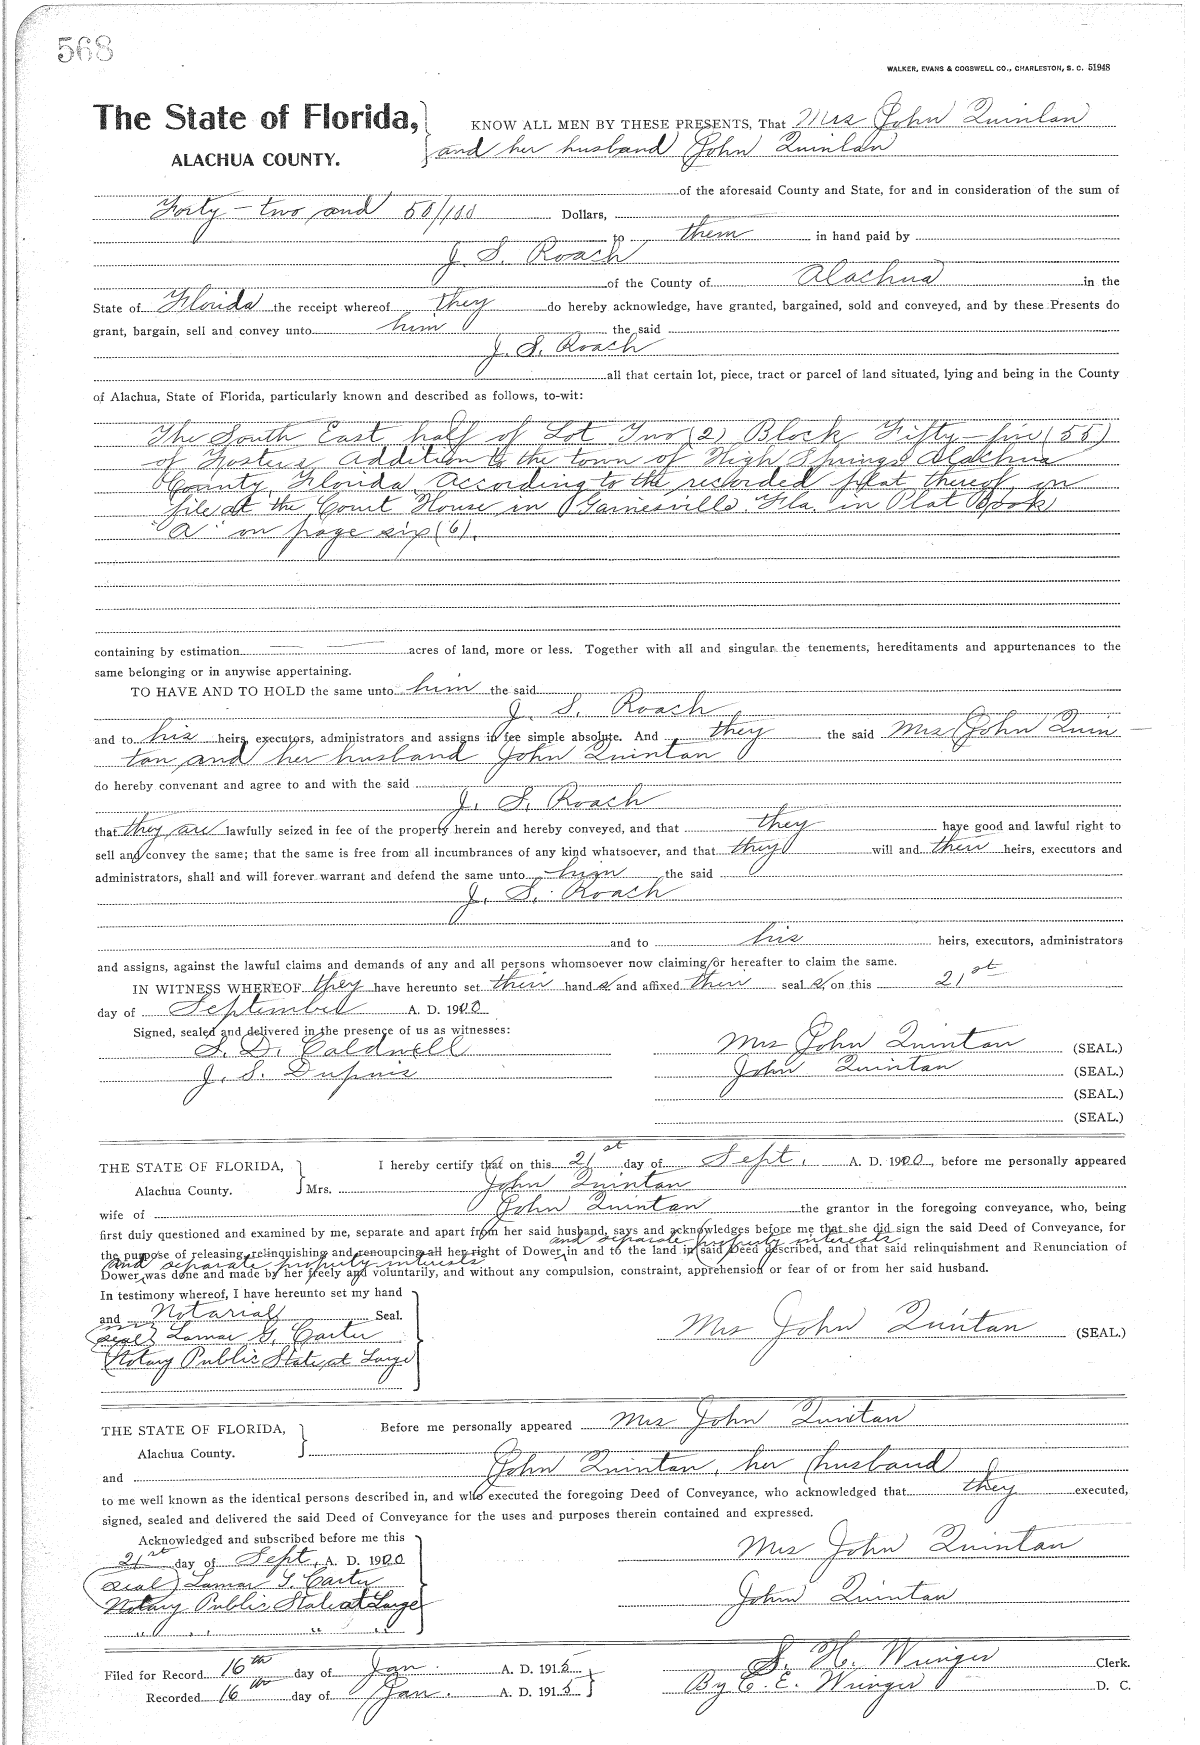 568
WALKER, EVANS & COGSWELL CO., CHARLESTON, S. C. 51948
The State of Florida,
ALACHUA COUNTY.
KNOW ALL MEN BY THESE PRESENTS, That Mrs John Quinlan
and her husband John Quinlan
of the aforesaid County and State, for and in consideration of the sum of
Forty-two and 50/100 Dollars,
to them in hand paid by
J. S. Roach
of the County of Alachua in the
State of Florida the receipt whereof they do hereby acknowledge, have granted, bargained, sold and conveyed, and by these Presents do
grant, bargain, sell and convey unto him the said
J. S. Roach
all that certain lot, piece, tract or parcel of land situated, lying and being in the County
of Alachua, State of Florida, particularly known and described as follows, to-wit:
The South East half of Lot Two (2) Block Fifty-five (55)
of Fosters Addition to the town of High Springs Alachua
County, Florida, According to the recorded plat thereof, on
file at the Court House in Gainesville. Fla. in Plat Book
"A" on page six (6).
containing by estimation acres of land, more or less. Together with all and singular the tenements, hereditaments and appurtenances to the
same belonging or in anywise appertaining.
TO HAVE AND TO HOLD the same unto him the said
J. S. Roach
and to his heirs, executors, administrators and assigns in fee simple absolute. And they the said Mrs John Quin
tan and her husband John Quintan
do hereby convenant and agree to and with the said
J. S. Roach
that they are lawfully seized in fee of the property herein and hereby conveyed, and that they have good and lawful right to
sell and convey the same; that the same is free from all incumbrances of any kind whatsoever, and that they will and their heirs, executors and
administrators, shall and will forever warrant and defend the same unto him the said
J. S. Roach
and to his heirs, executors, administrators
and assigns, against the lawful claims and demands of any and all persons whomsoever now claiming or hereafter to claim the same.
IN WITNESS WHEREOF they have hereunto set their hand s and affixed their seal s, on this 21st
day of September A. D. 1900
Signed, sealed and delivered in the presence of us as witnesses:
S. D. Caldwell
J. S. Dupuis
Mrs John Quintan (SEAL.)
John Quintan (SEAL.)
(SEAL.)
(SEAL.)
THE STATE OF FLORIDA,
Alachua County.
I hereby certify that on this 21st day of Sept. A. D. 1900, before me personally appeared
Mrs. John Quintan
wife of John Quintan the grantor in the foregoing conveyance, who, being
first duly questioned and examined by me, separate and apart from her said husband, says and acknowledges before me that she did sign the said Deed of Conveyance, for
and separate property interests
the purpose of releasing, relinquishing and renouncing all her right of Dower in and to the land in said Deed described, and that said relinquishment and Renunciation of
and separate property interests
Dower was done and made by her freely and voluntarily, and without any compulsion, constraint, apprehension or fear of or from her said husband.
In testimony whereof, I have hereunto set my hand
and Notarial Seal.
(seal) Lamar G. Carter
Notary Public State at Large
Mrs John Quintan (SEAL.)
THE STATE OF FLORIDA,
Alachua County.
Before me personally appeared Mrs John Quintan
and John Quintan, her husband
to me well known as the identical persons described in, and who executed the foregoing Deed of Conveyance, who acknowledged that they executed,
signed, sealed and delivered the said Deed of Conveyance for the uses and purposes therein contained and expressed.
Acknowledged and subscribed before me this
21st day of Sept, A. D. 1900
(seal) Lamar G. Carter
Notary Public State at Large
" " " "
Mrs John Quintan
John Quintan
Filed for Record 16th day of Jan. A. D. 1915
Recorded 16th day of Jan. A. D. 1915
S. H. Wienges Clerk.
By C. E. Wienges D. C.